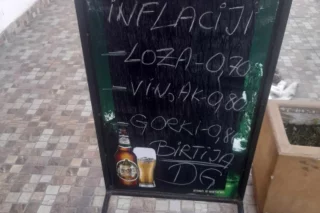 INFLACIJI
-LOZA-0,70
-VINJAK-0,80
-GORKI-0,80
BIRTIJA
DG